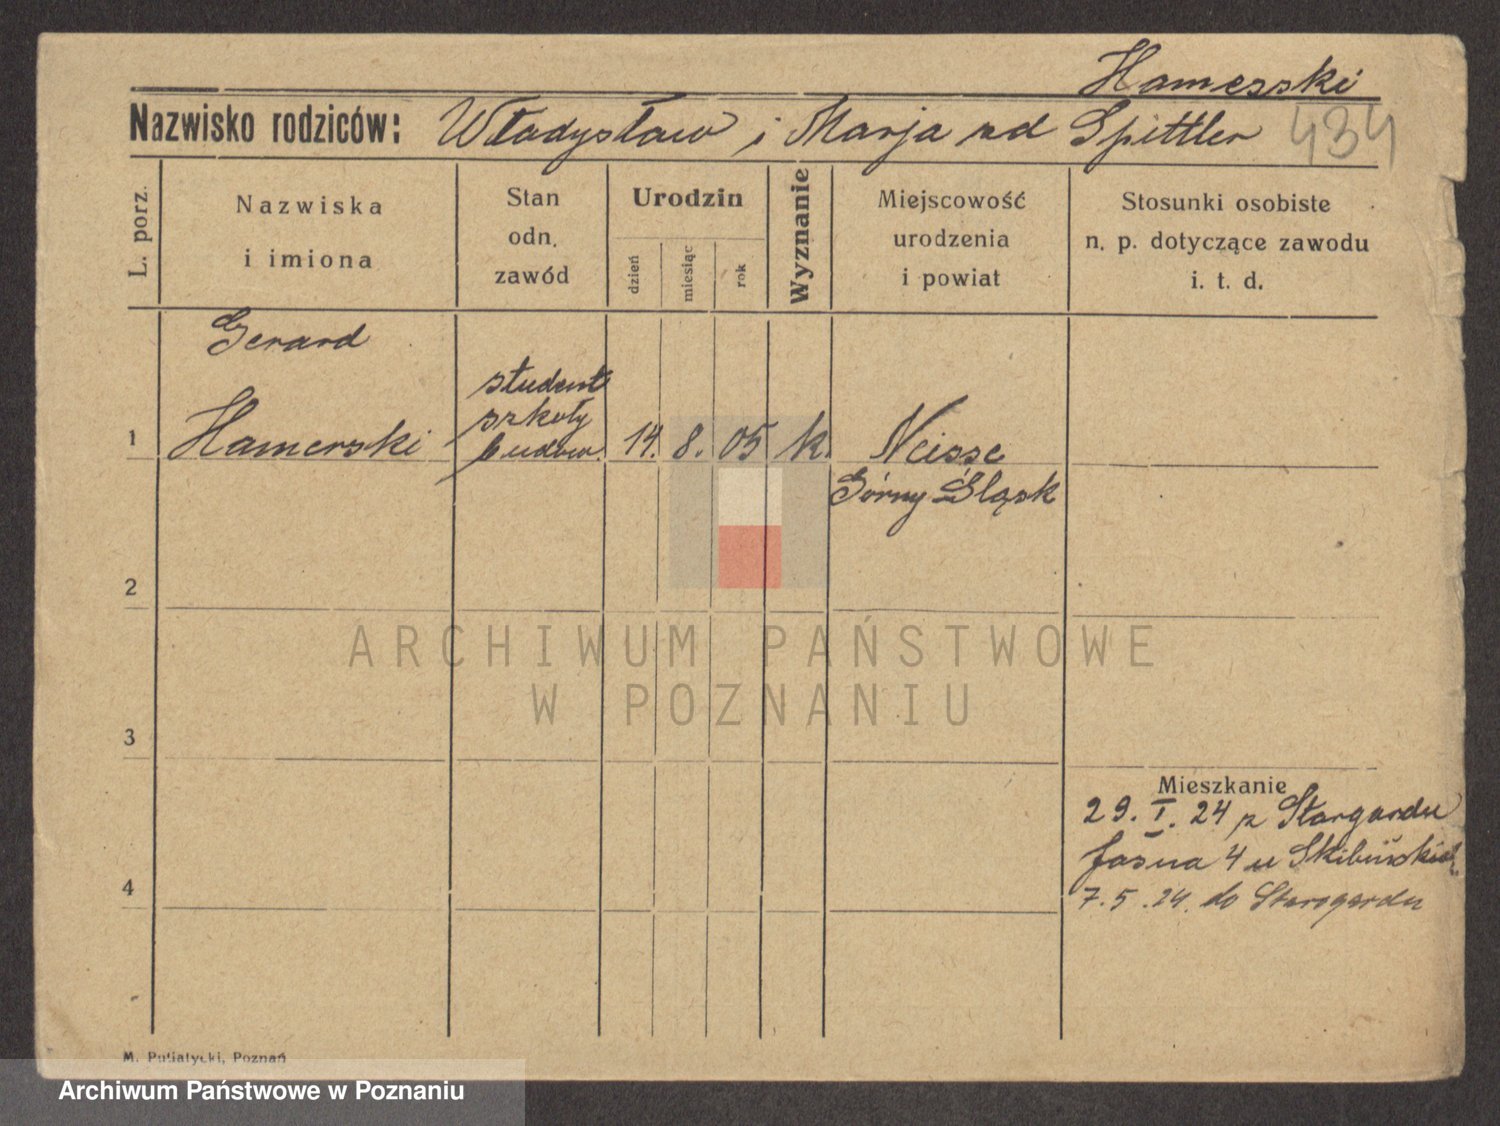 Hamerski
Nazwisko rodziców: Władysław i Marja zd Spittler 434
L. porz.
Nazwiska
i imiona
Stan
odn.
zawód
Urodzin
dzień
miesiąc
rok
Wyznanie
Miejscowość
urodzenia
i powiat
Stosunki osobiste
n. p. dotyczące zawodu
i. t. d.
Gerard
student
szkoły
1 Hamerski budow. 14. 8. 05 k. Neisse
Górny Śląsk
2
ARCHIWUM PAŃSTWOWE
W POZNANIU
3
Mieszkanie
29. I. 24 z Stargardu
Jasna 4 u
4
7. 5. 24. do Starogardu
M. Putiatycki, Poznań
Archiwum Państwowe w Poznaniu